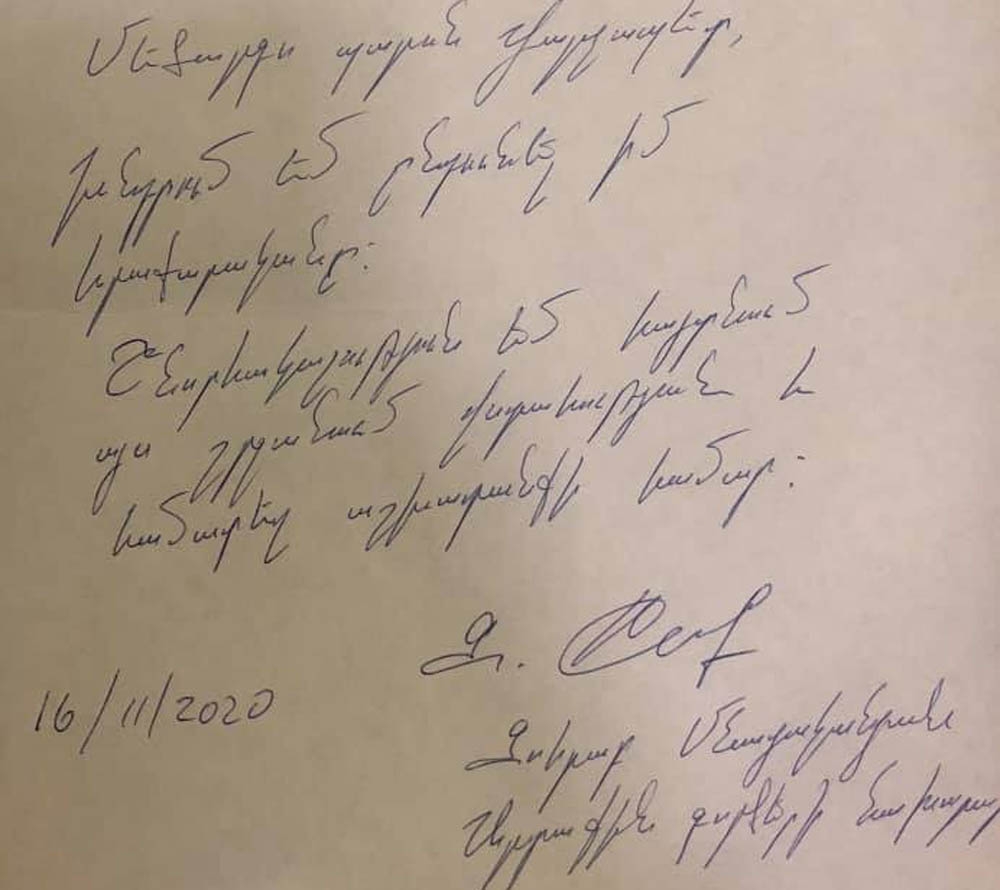 Մեծարգո պարոն Վարչապետ,
խնդրում եմ ընդունել իմ
հրաժարականը:
Շնորհակալություն եմ հայտնում
այս շրջանում վստահության և
համատեղ աշխատանքի համար:
Զ.
16/11/2020
Զոհրաբ Մնացականյան
Արտաքին գործերի նախարար